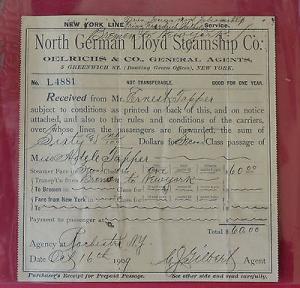 NEW YORK LINE Service.
Bremen to New York
North German Lloyd Steamship Co.
OELRICHS & CO., GENERAL AGENTS,
5 GREENWICH ST. (Bowling Green Offices), NEW YORK.
No. L4881 NOT TRANSFERABLE. GOOD FOR ONE YEAR.
Received from Mr Ernest Tapper
subject to conditions as printed on back of this, and on notice
attached, and also to the rules and conditions of the carriers,
over whose lines the passengers are forwarded, the sum of
Sixty & Dollars for Class passage of
Adele Tapper
Steamer Fare in Class for one 60.00
Bremen to New York
To Bremen in Class for
Fare from New York in Class for
to
Payment to passenger at
TOTAL $ 60.00
Agency at Rochester NY.
Date Oct 16th 1909 Gilbert Agent
Purchaser's Receipt for Prepaid Passage. (See other side and read carefully.